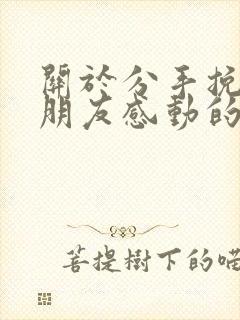 關於分手挽
朋友感動的
菩提樹下的喵